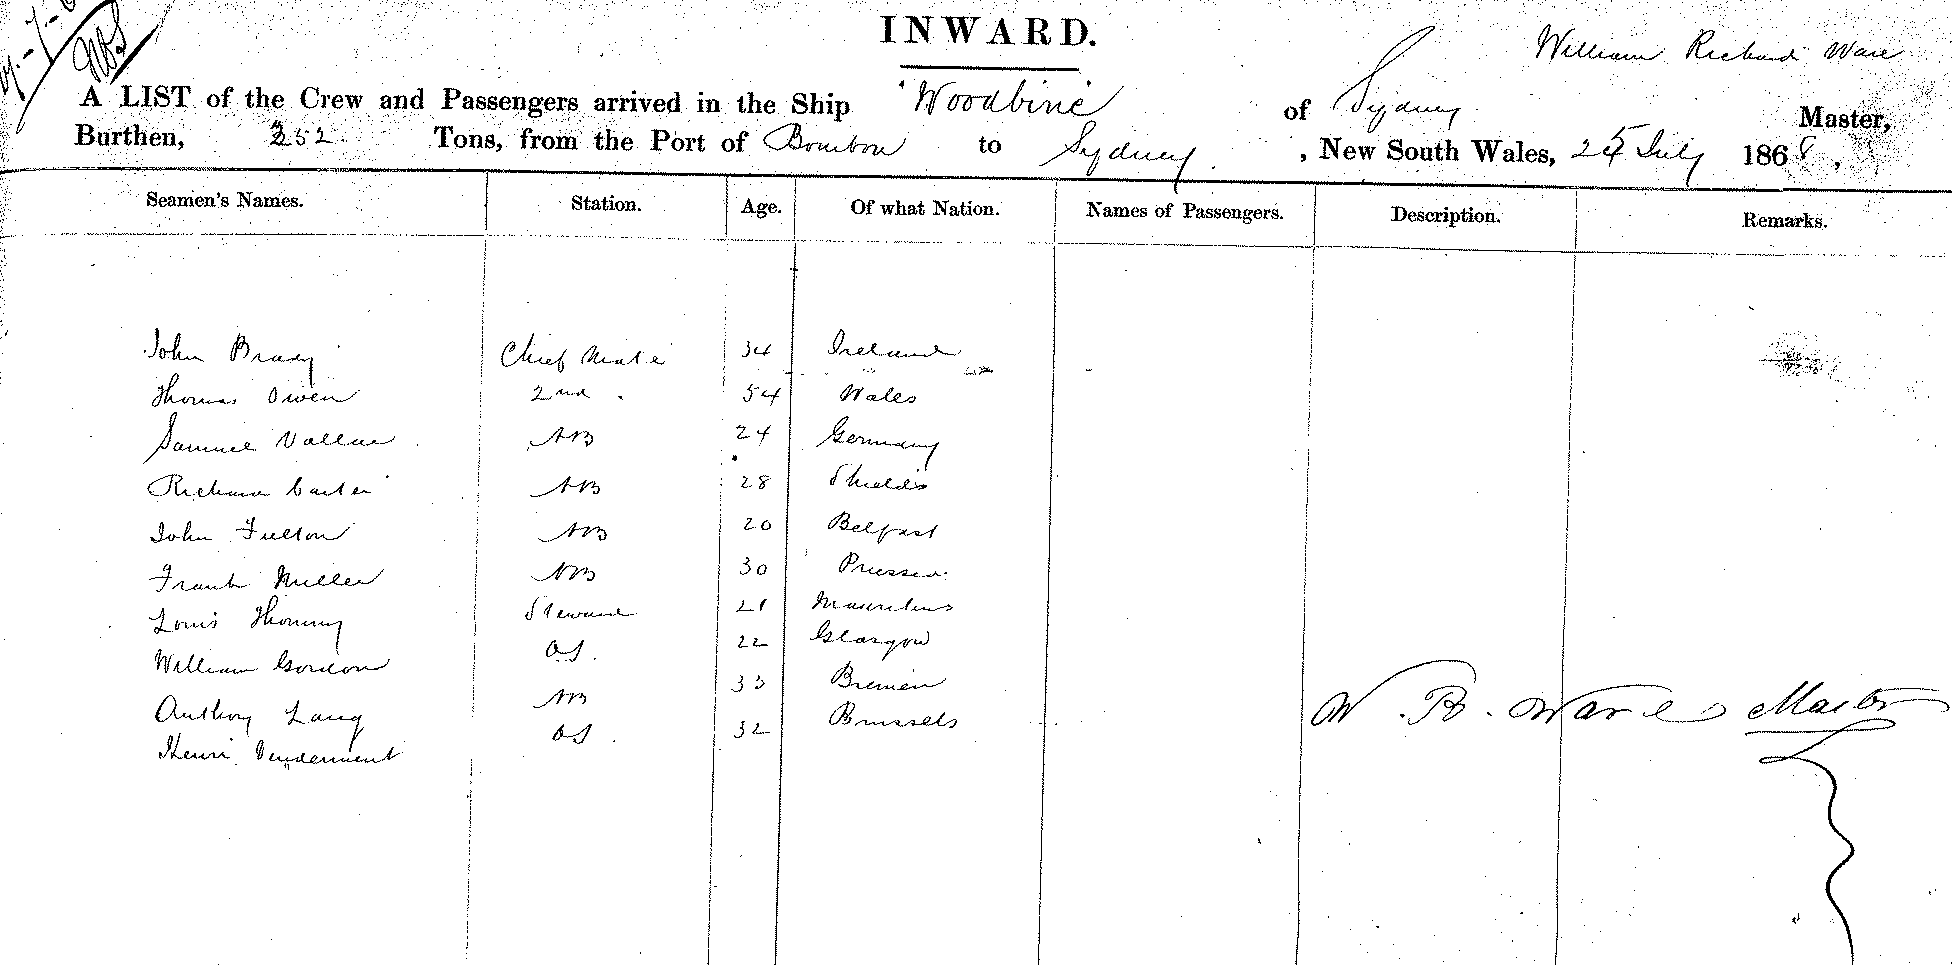 INWARD.
William Richard Ware
A LIST of the Crew and Passengers arrived in the Ship "Woodbine" of Sydney Master,
Burthen, 252 Tons, from the Port of Bourbon to Sydney, New South Wales, 25 July 1868,
Seamen's Names. Station. Age. Of what Nation. Names of Passengers. Description. Remarks.
John Brady Chief Mate 34 Ireland
Thomas Owen 2nd " 54 Wales
Samuel AB 24 Germany
Richard Carter AB 28 Shields
John Fulton AB 20 Belfast
Frank Miller AB 30 Prussia
Louis Steward 21 Mauritius
William Gordon OS. 22 Glasgow
Anthony Lang AB 33 Bremen
Henri OS. 32 Brussels
W. R. Ware Master